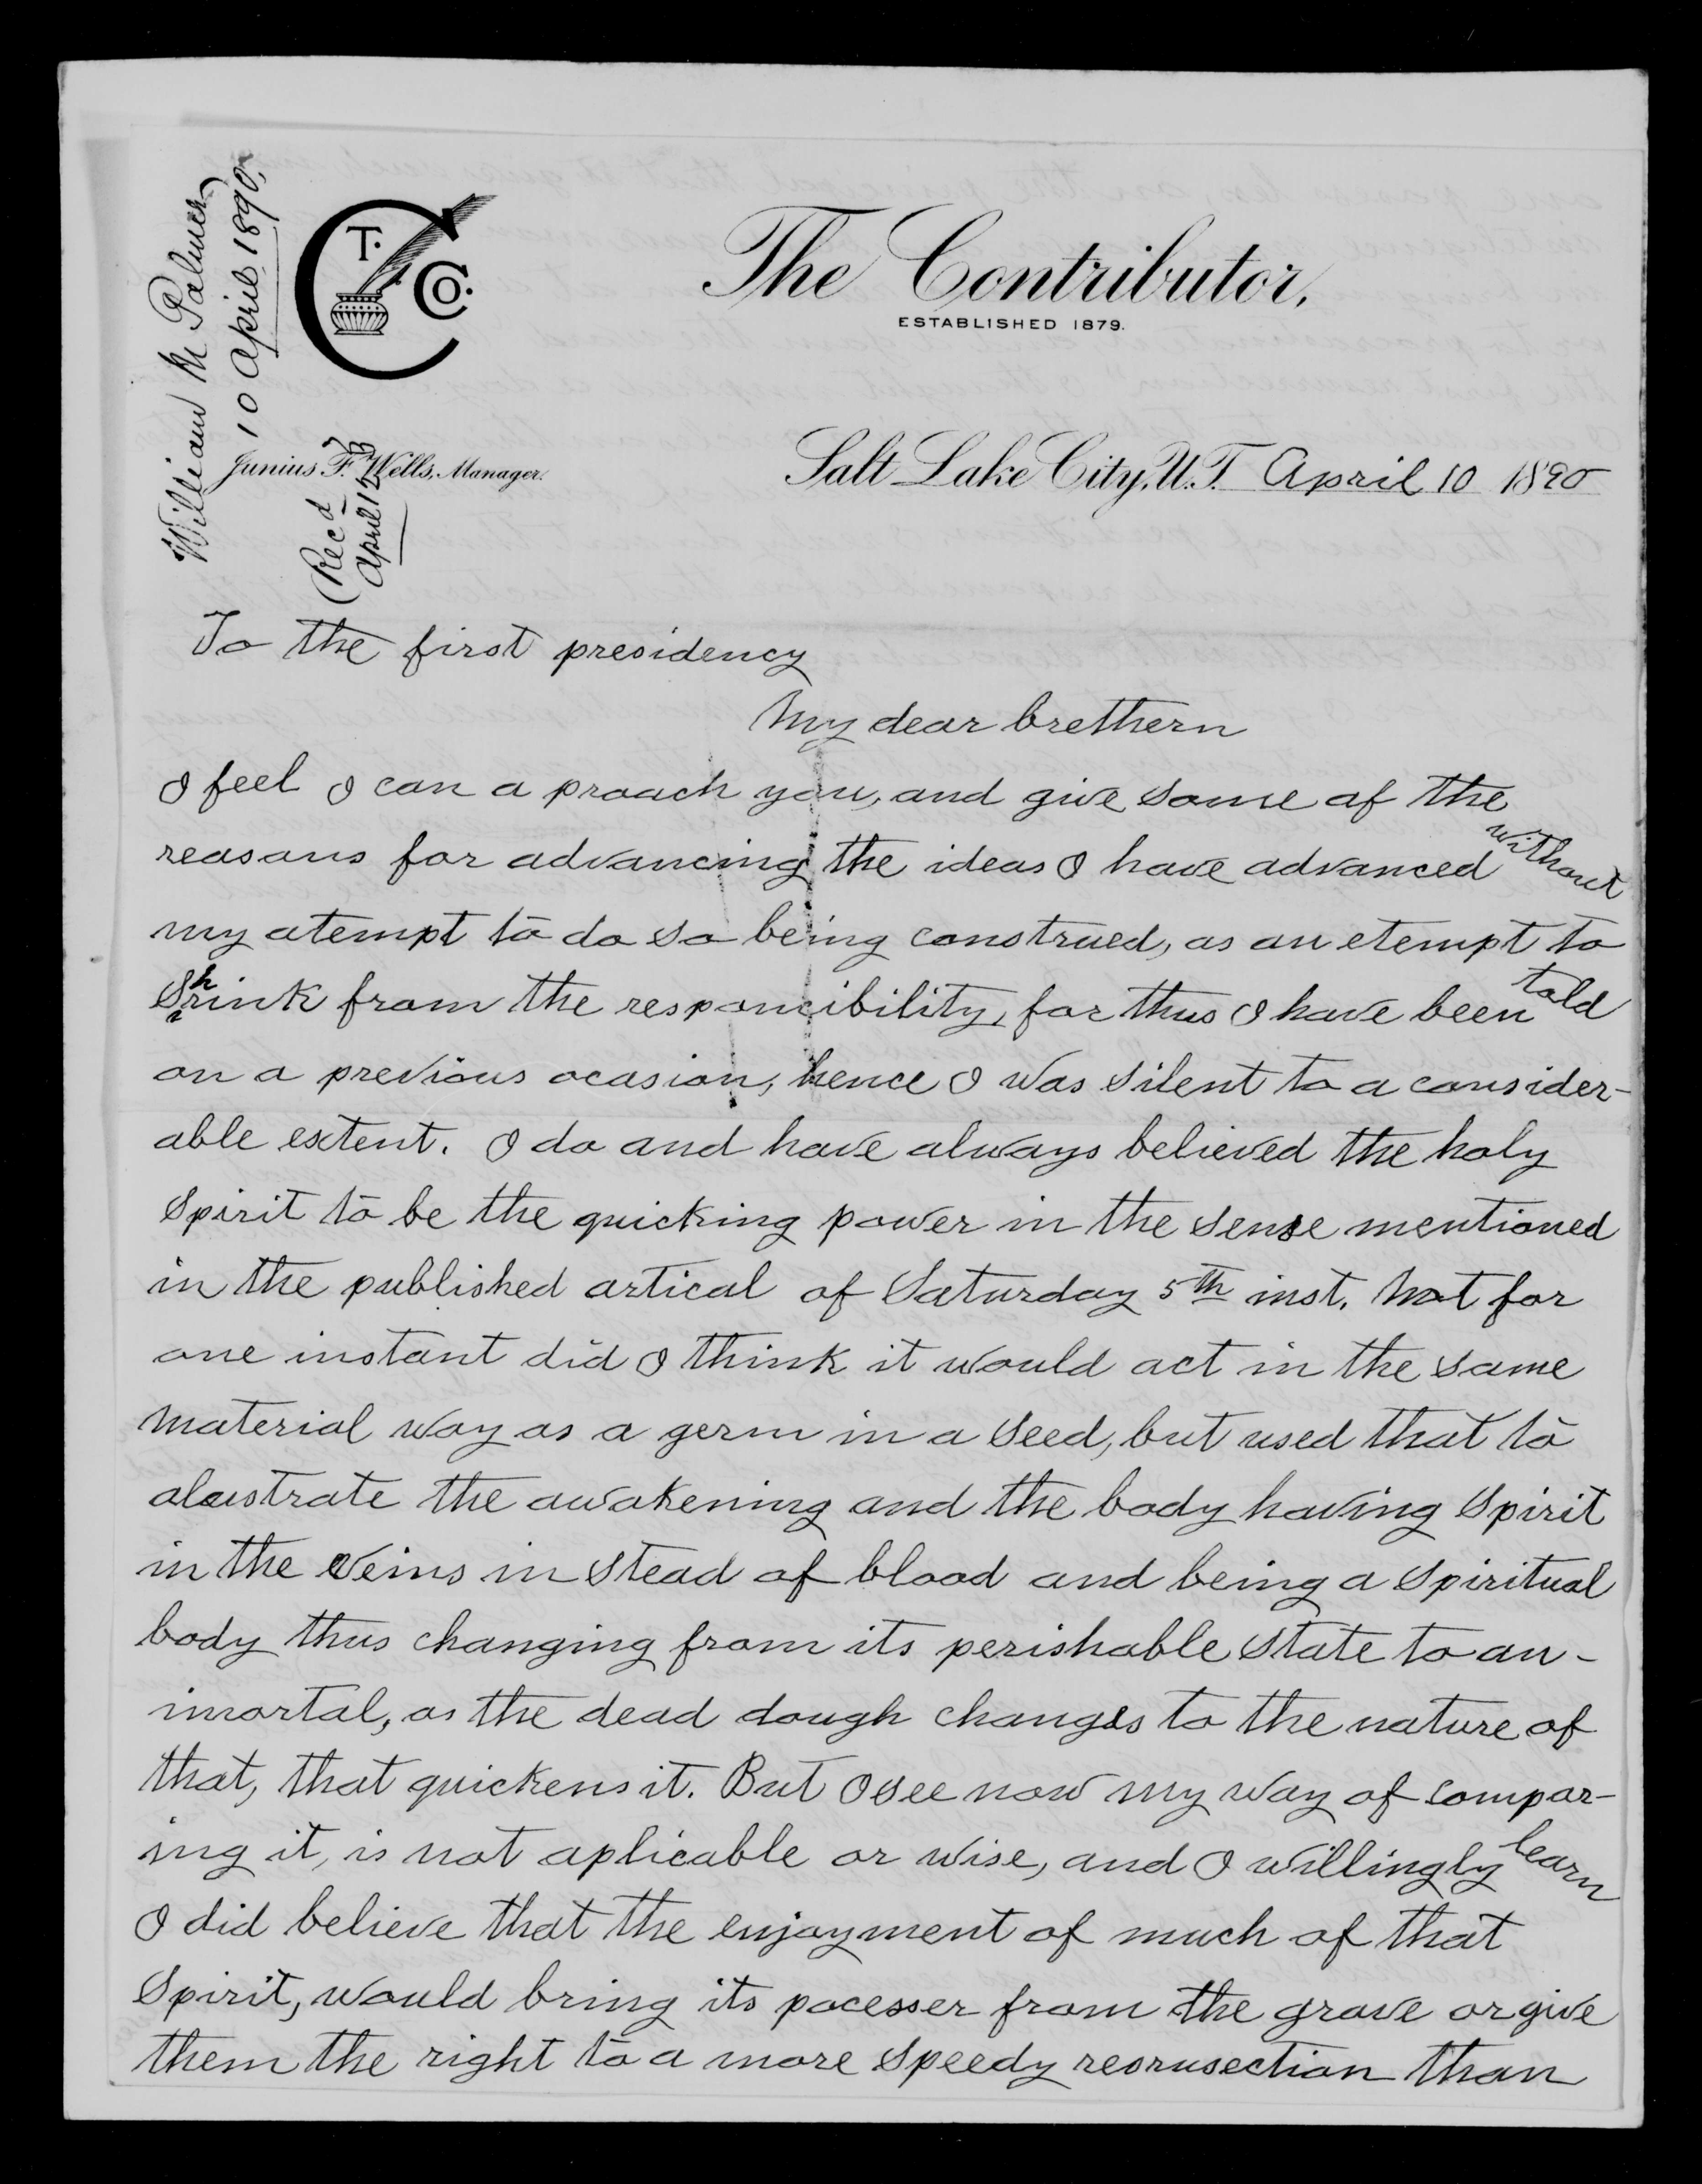 William M Palmer
10 April 1890.
(Recd
April 12)
T. C. Co.
The Contributor,
ESTABLISHED 1879.
Junius F. Wells, Manager.
Salt Lake City, U.T. April 10 1890
To the first presidency
My dear brethern
I feel I can a proach you, and give some of the
reasons for advancing the ideas I have advanced without
my atempt to do so being construed, as an etempt to
Shrink from the responcibility, for thus I have been told
on a previous ocasion, hence I was silent to a consider-
able extent. I do and have always believed the holy
Spirit to be the quicking power in the sense mentioned
in the published artical of Saturday 5th inst. Not for
one instant did I think it would act in the same
material way as a germ in a seed, but used that to
alustrate the awakening and the body having Spirit
in the veins in stead of blood and being a Spiritual
body thus changing from its perishable state to an-
imortal, as the dead dough changes to the nature of
that, that quickens it. But I see now my way of compar-
ing it, is not aplicable or wise, and I willingly learn
I did believe that the enjoyment of much of that
Spirit, would bring its pocesser from the grave or give
them the right to a more speedy resrusection than